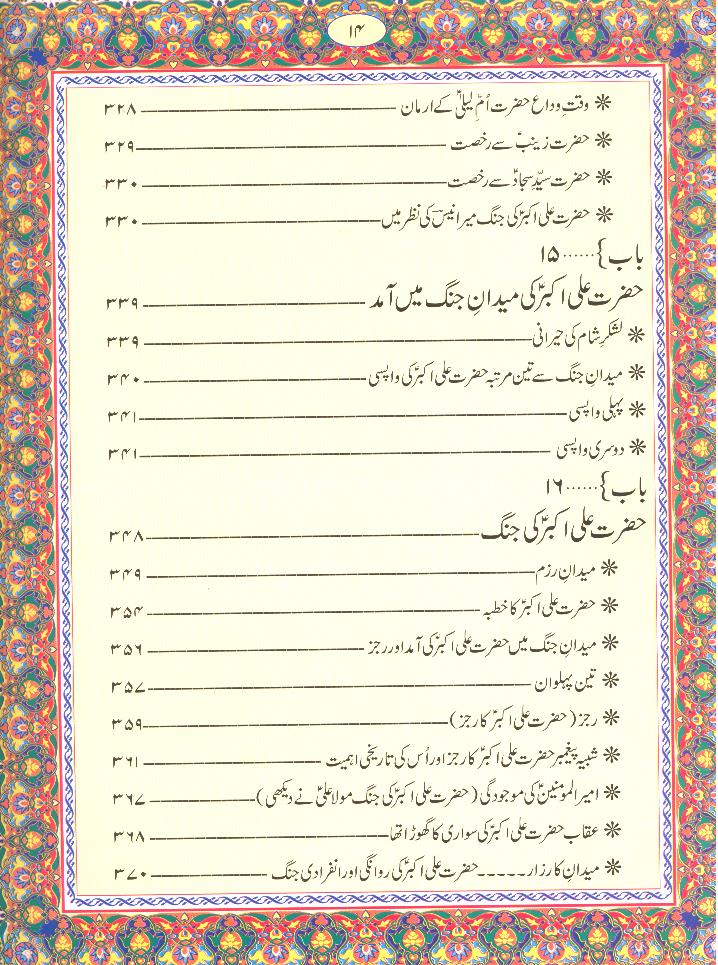 ۱۴
❋ وقتِ وداع حضرت اُمّ لیلیٰؑ کے ارمان ۳۲۸
❋ حضرت زینبؑ سے رخصت ۳۲۹
❋ حضرت سیّدِ سجادؑ سے رخصت ۳۳۰
❋ حضرت علی اکبرؑ کی جنگ میر انیسؔ کی نظر میں ۳۳۰
باب}......۱۵
حضرت علی اکبرؑ کی میدانِ جنگ میں آمد ۳۳۹
❋ لشکرِ شام کی حیرانی ۳۳۹
❋ میدانِ جنگ سے تین مرتبہ حضرت علی اکبرؑ کی واپسی ۳۴۰
❋ پہلی واپسی ۳۴۱
❋ دوسری واپسی ۳۴۱
باب}......۱۶
حضرت علی اکبرؑ کی جنگ ۳۴۸
❋ میدانِ رزم ۳۴۹
❋ حضرت علی اکبرؑ کا خطبہ ۳۵۴
❋ میدانِ جنگ میں حضرت علی اکبرؑ کی آمد اور رجز ۳۵۶
❋ تین پہلوان ۳۵۷
❋ رجز (حضرت علی اکبرؑ کا رجز) ۳۵۹
❋ شبیہِ پیغمبر حضرت علی اکبرؑ کا رجز اور اُس کی تاریخی اہمیت ۳۶۱
❋ امیر المومنینؑ کی موجودگی (حضرت علی اکبرؑ کی جنگ مولا علیؑ نے دیکھی) ۳۶۷
❋ عقاب حضرت علی اکبرؑ کی سواری کا گھوڑا تھا ۳۶۸
❋ میدانِ کارزار-----حضرت علی اکبرؑ کی روانگی اور انفرادی جنگ ۳۷۰